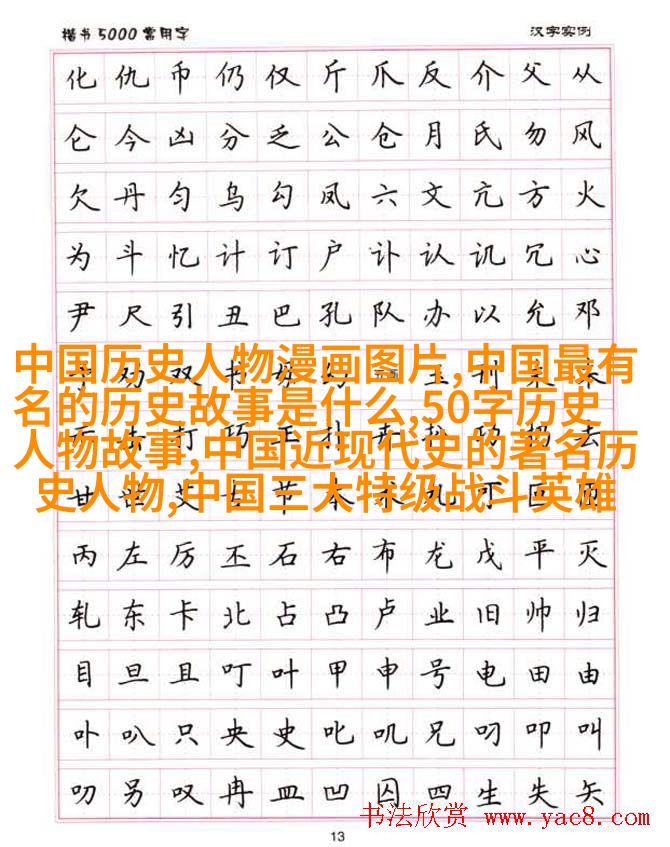 楷书5000常用字 汉字实例
化仇币仍仅斤爪反介父从
仑今凶分乏公仓月氏勿风
欠丹匀乌勾凤六文亢方火
为斗忆计订户讣认讥冗心
尹尺引丑巴孔队办以允邓
中国历史人物漫画图片,中国最有
名的历史故事是什么,50字历史
人物故事,中国近现代史的著名历
史人物,中国三大特级战斗英雄
丙左厉丕石右布龙戊平灭
轧东卡北占凸卢业旧帅归
目旦且叮叶甲申号电田由
卟叭只央史叱叽兄叼叩叫
叨另叹冉皿凹囚四生失矢
书法欣赏 www.yac8.com
13